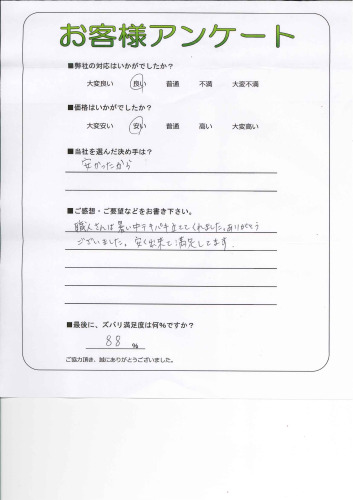 お客様アンケート
■弊社の対応はいかがでしたか?
大変良い 良い 普通 不満 大変不満
■価格はいかがでしたか?
大変安い 安い 普通 高い 大変高い
■当社を選んだ決め手は?
安かったから
■ご感想・ご要望などをお書き下さい。
職人さんは暑い中テキパキ立ててくれました。ありがとう
ございました。安く出来て満足してます.
■最後に、ズバリ満足度は何%ですか?
88 %
ご協力頂き、誠にありがとうございました。